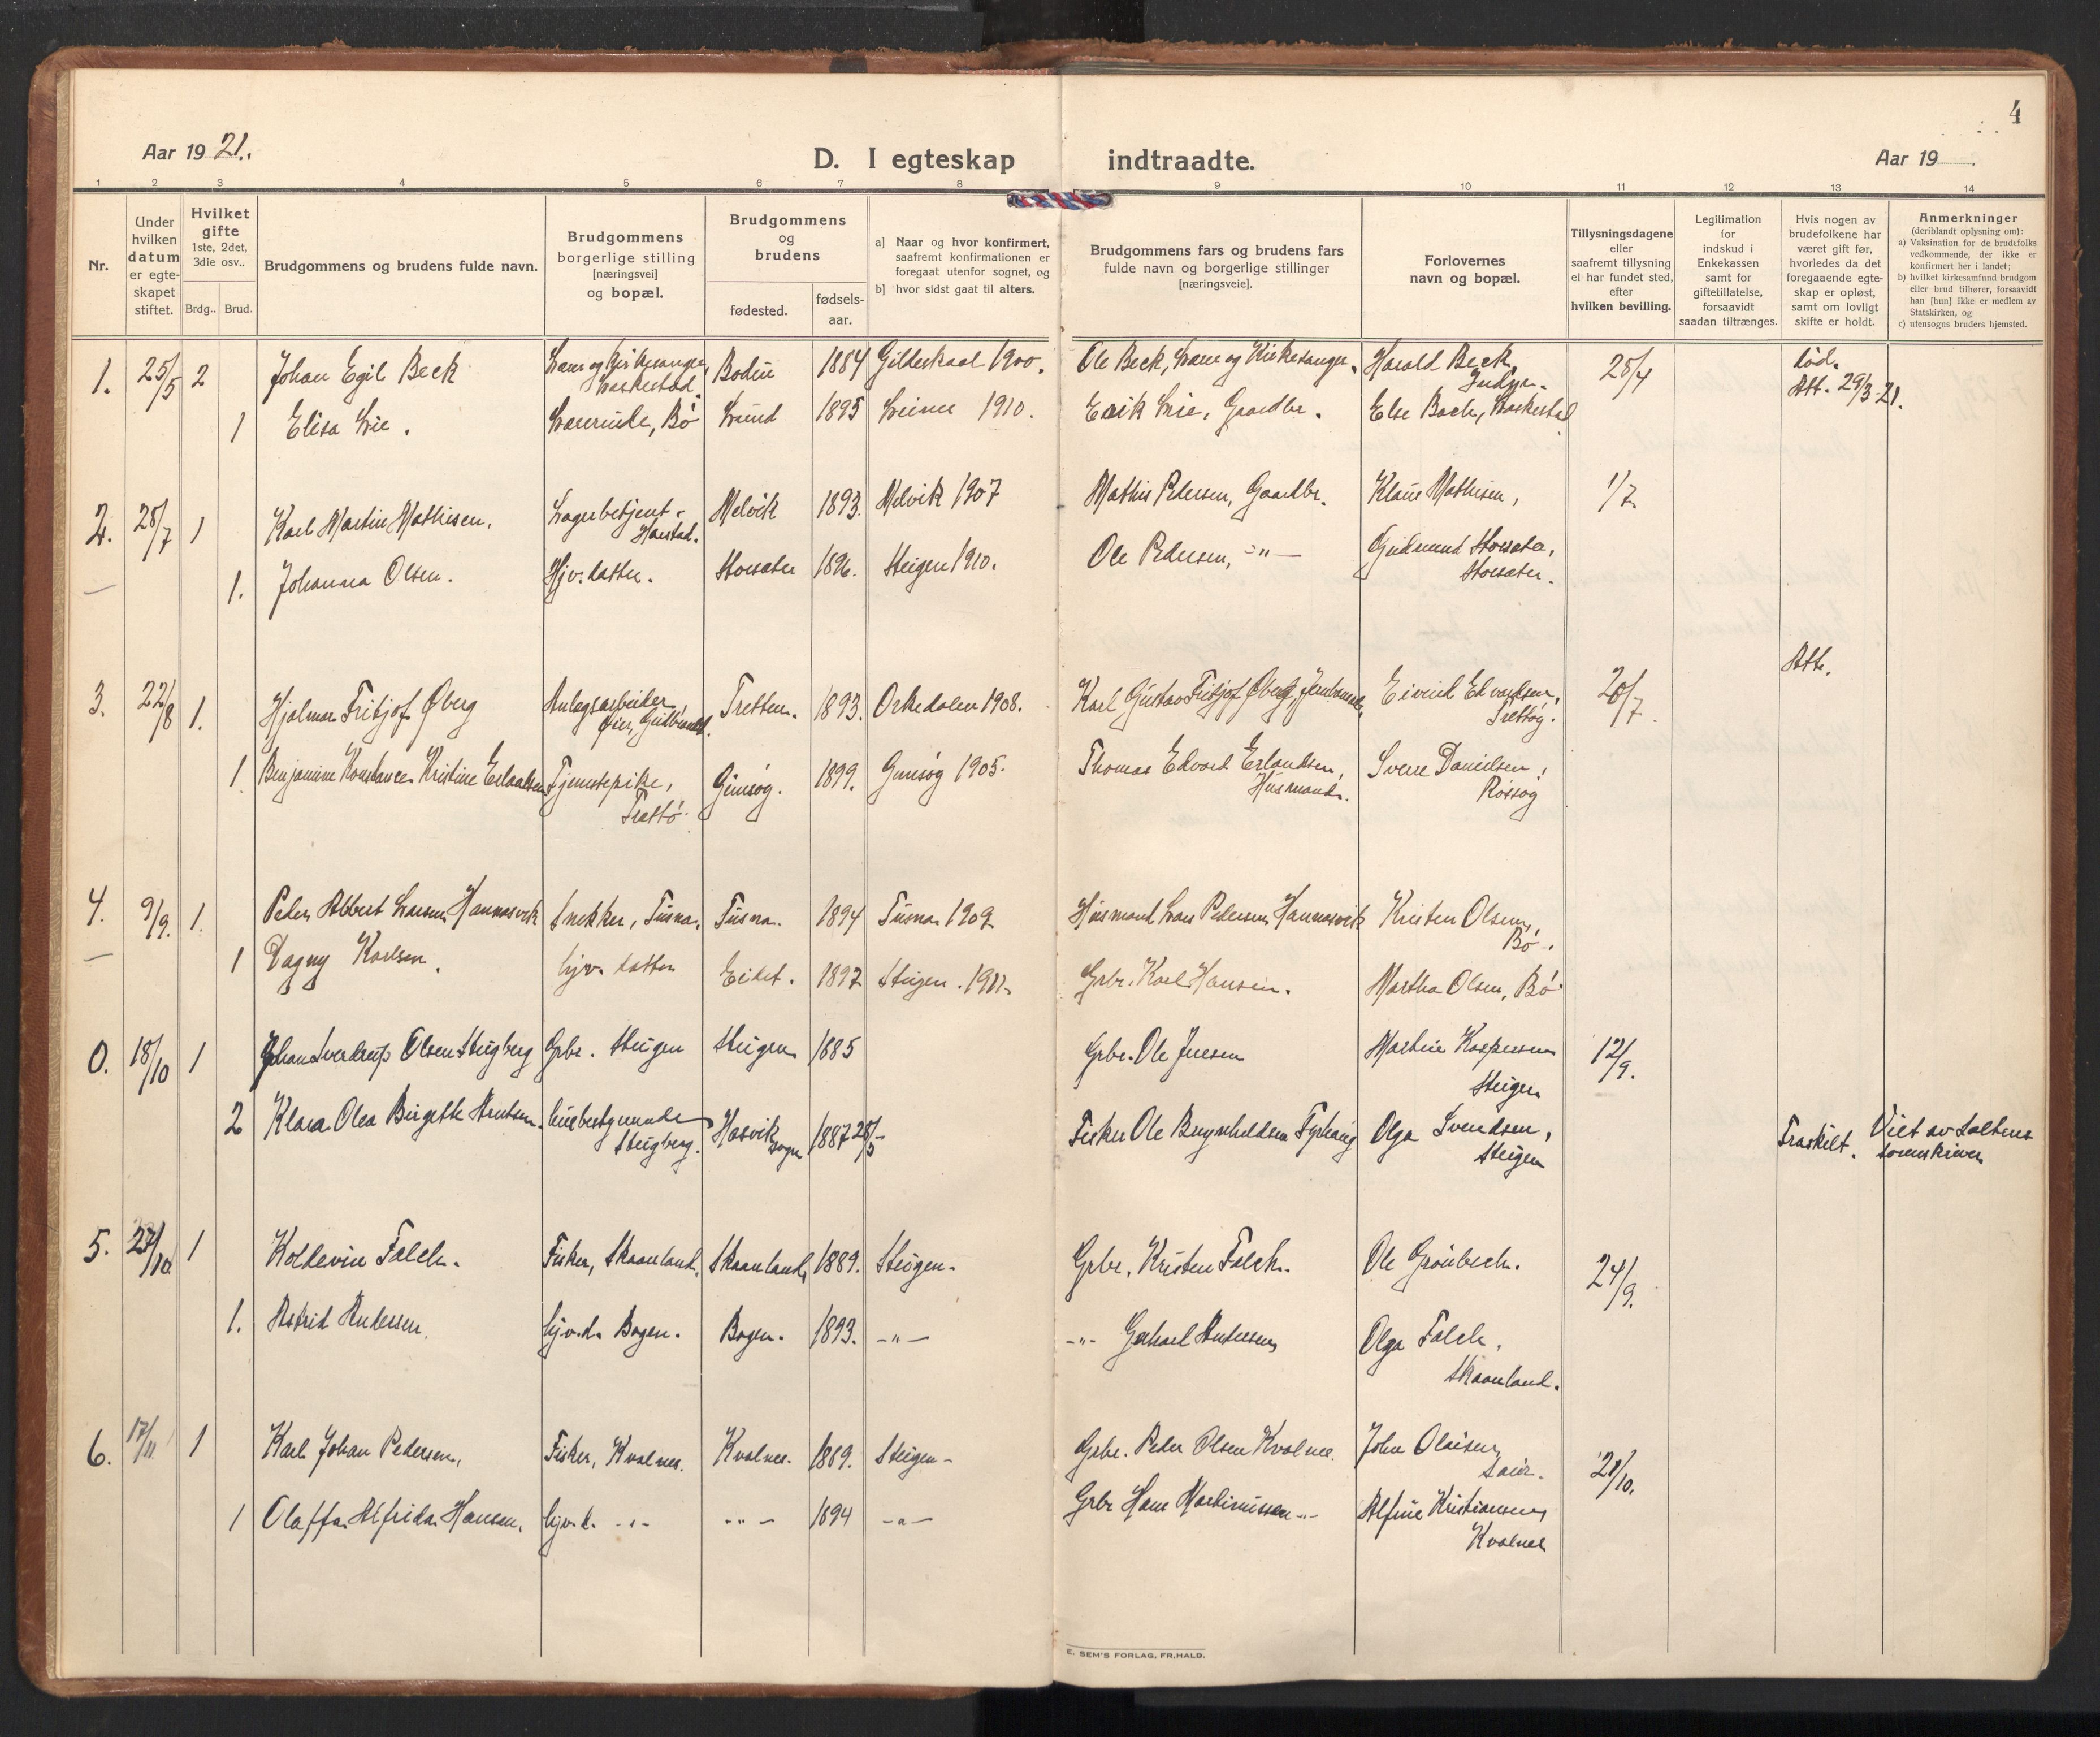 4
Aar 1921.
D. I egteskap indtraadte.
Aar 19
1 2 3 4 5 6 7 8 9 10 11 12 13 14
Nr.
Under hvilken datum er egteskapet stiftet.
Hvilket gifte
1ste, 2det, 3die osv..
Brdg.. Brud.
Brudgommens og brudens fulde navn.
Brudgommens borgerlige stilling [næringsvei] og bopæl.
Brudgommens og brudens
fødested.
fødsels-aar.
a] Naar og hvor konfirmert, saafremt konfirmationen er foregaat utenfor sognet, og
b] hvor sidst gaat til alters.
Brudgommens fars og brudens fars fulde navn og borgerlige stillinger [næringsveie].
Forlovernes navn og bopæl.
Tillysningsdagene eller saafremt tillysning ei har fundet sted, efter hvilken bevilling.
Legitimation for indskud i Enkekassen samt for giftetillatelse, forsaavidt saadan tiltrænges.
Hvis nogen av brudefolkene har været gift før, hvorledes da det foregaaende egteskap er opløst, samt om lovligt skifte er holdt.
Anmerkninger (deriblandt oplysning om):
a) Vaksination for de brudefolks vedkommende, der ikke er konfirmert her i landet;
b) hvilket kirkesamfund brudgom eller brud tilhører, forsaavidt han [hun] ikke er medlem av Statskirken, og
c) utensogns bruders hjemsted.
1. 25/5 2 Johan Egil Beck Lærer og Kirkesanger, Laskestad. Bodin 1884 Gildeskaal 1900. Ole Beck, Lærer og Kirkesanger. Harald Beck, 28/4 Død. Att. 29/3-21.
1 Elisa Lie. Lærerinde, Bø Lund 1895 Leines 1910. Erik Lie, Gaardbr. Else Bach, Laskestad
2. 28/7 1 Karl Martin Mathisen. Lagerbetjent, Harstad. Melvik 1893. Melvik 1907 Mathis Pedersen, Gaardbr. Klaus Mathisen, 1/7
1. Johanna Olsen. Hjv. datter. Storsæter 1896. Steigen 1910. Ole Pedersen, -"- Gudmund Storsæter, Storsæter.
Att.
3. 22/8 1. Hjalmar Fritjof Øberg Anlegsarbeider Øier, Gudbrandsd. Tretten. 1893. Orkedalen 1908. Karl Gustav Fritjof Øberg, Eivind Edvardsen, 20/7.
1 Benjamine Konstance Kristine Erlandsen Tjenestepike, Gimsøy. 1899. Gimsøy 1905. Thomas Edvard Erlandsen, Husmand. Sverre Danielsen, Røssøy
4. 9/9. 1. Peder Albert Larsen Hannasvik Snekker, Tusna. Tusna. 1894 Tusna 1909 Husmand Lars Pedersen Hannasvik Kristen Olsen, Bø.
1 Dagny Karlsen. hjv. datter Eidet. 1897 Steigen. 1911. Grbr. Karl Hansen. Martha Olsen, Bø
0. 18/10 1 Johan Sverdrup Olsen Steigberg Grbr. Steigen Steigen 1885 Grbr. Ole Juesen Martin Kaspersen Steigen 12/9.
2 Klara Olea Birgitte Knutsen. husbestyrende Steigberg. Hasvik sogn 1887 28/5 Fisker Ole Brynhildsen Olga Svendsen, Steigen Fraskilt. Viet av Saltens sorenskriver
5. 27/10 1 Koldevin Falch. Fisker, Skaanland. Skaanland 1889. Steigen. Grbr. Kristen Falch. Ole Grønbech. 24/9.
1. Astrid Andersen. hjv.d. Bogen. Bogen. 1893. -"- -"- Gerhard Andersen Olga Falch, Skaanland.
6. 17/11 1 Karl Johan Pedersen, Fisker, Kvalnes. Kvalnes. 1889. Steigen. Grbr. Peder Olsen Kvalnes. John Olaisen, 28/10.
1 Olaffa Alfrida Hansen. hjv.d. -"- -"- 1894 -"- Grbr Hans Martinussen -"- Alfine Kristiansen, Kvalnes
E. SEM'S FORLAG, FR.HALD.